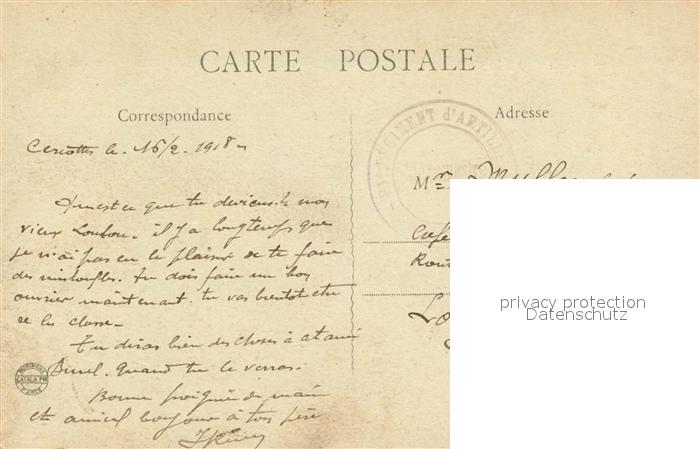 CARTE POSTALE
Correspondance
Adresse
Cercottes le 16/2 1918
RÉGIMENT d'ARTILL
Mr
Qu'est ce que tu deviens mon
vieux Loulou. il y a longtemps que
je n'ai pas eu le plaisir de te faire
des . tu dois faire un bon
ouvrier maintenant. tu vas bientôt etre
de la classe.
Tu diras bien des choses à ton ami
quand tu le verras.
Bonne poignée de main
et amical bonjour à ton père
Café
Rout
Lo
privacy protection
Datenschutz